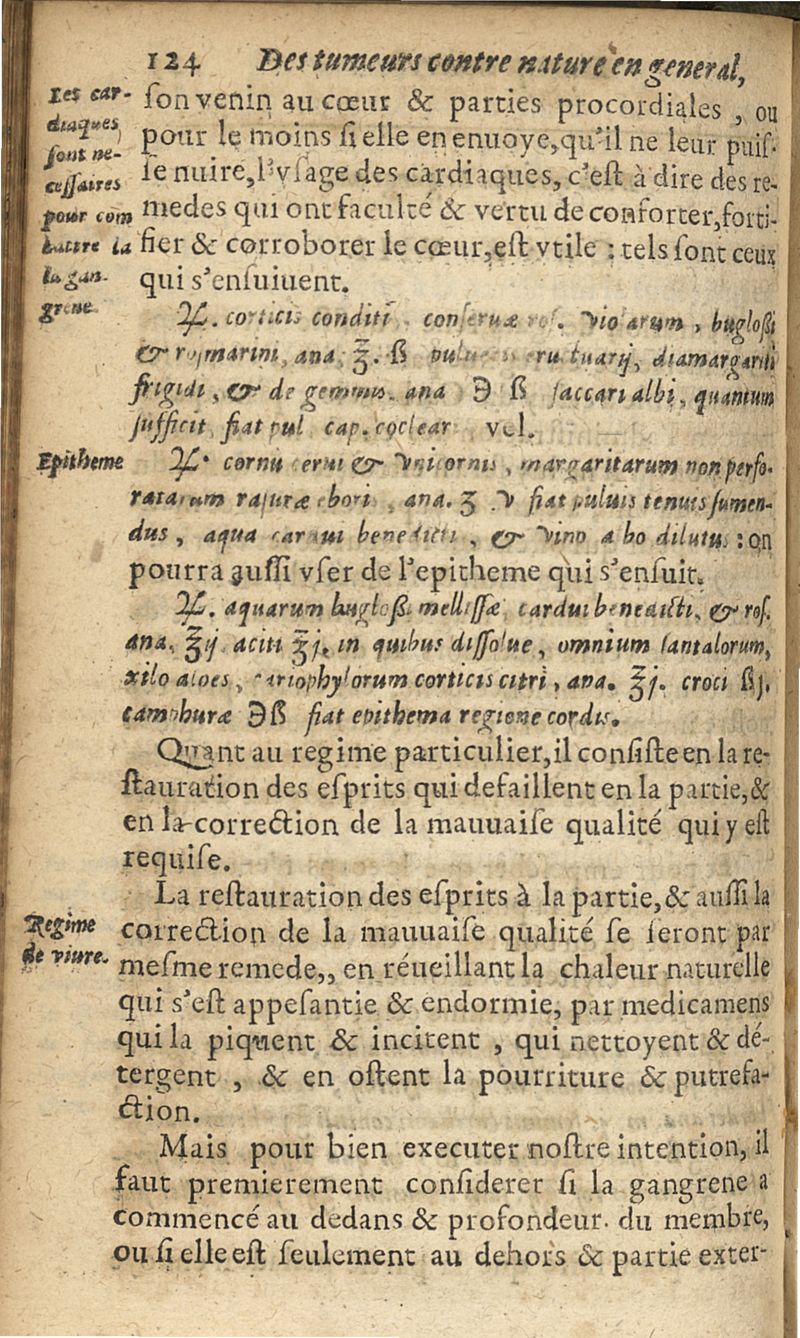 124 Des tumeurs contre nature en general,
Les car-
diaques
sont ne-
cessaires
pour com
batre la
la gan-
grene.
son venin au cœur & parties procordiales, ou
pour le moins si elle en enuoye, qu'il ne leur puis-
se nuire, l'vsage des cardiaques, c'est à dire des re-
medes qui ont faculté & vertu de conforter, forti-
fier & corroborer le cœur, est vtile : tels sont ceux
qui s'ensuiuent.
℞. corticis conditi conseruæ ros. violarum, buglossi
& rosmarini, ana. ʒ. ß electuarij, diamargariti
frigidi, & de gemmis. ana ℈ ß saccari albi, quantum
sufficit fiat pul cap. coclear vel.
Epitheme
℞. cornu cerui & vnicornis, margaritarum non perfo-
ratarum rasuræ ebori, ana. ʒ v fiat puluis tenuis sumen-
dus, aqua cardui benedicti, & vino albo dilutus : on
pourra aussi vser de l'epitheme qui s'ensuit.
℞. aquarum buglossi mellissæ cardui benedicti, & ros.
ana. ℥ij aciti ℥j. in quibus dissolue, omnium santalorum,
xilo aloes, cariophylorum corticis citri, ana. ℥j. croci ßj.
camphuræ ℈ß fiat epithema regione cordis.
Quant au regime particulier, il consiste en la re-
stauration des esprits qui defaillent en la partie, &
en la correction de la mauuaise qualité qui y est
requise.
Regime
de viure.
La restauration des esprits à la partie, & aussi la
correction de la mauuaise qualité se seront par
mesme remede,, en réueillant la chaleur naturelle
qui s'est appesantie & endormie, par medicamens
qui la piquent & incitent, qui nettoyent & dé-
tergent, & en ostent la pourriture & putrefa-
ction.
Mais pour bien executer nostre intention, il
faut premierement considerer si la gangrene a
commencé au dedans & profondeur. du membre,
ou si elle est seulement au dehors & partie exter-